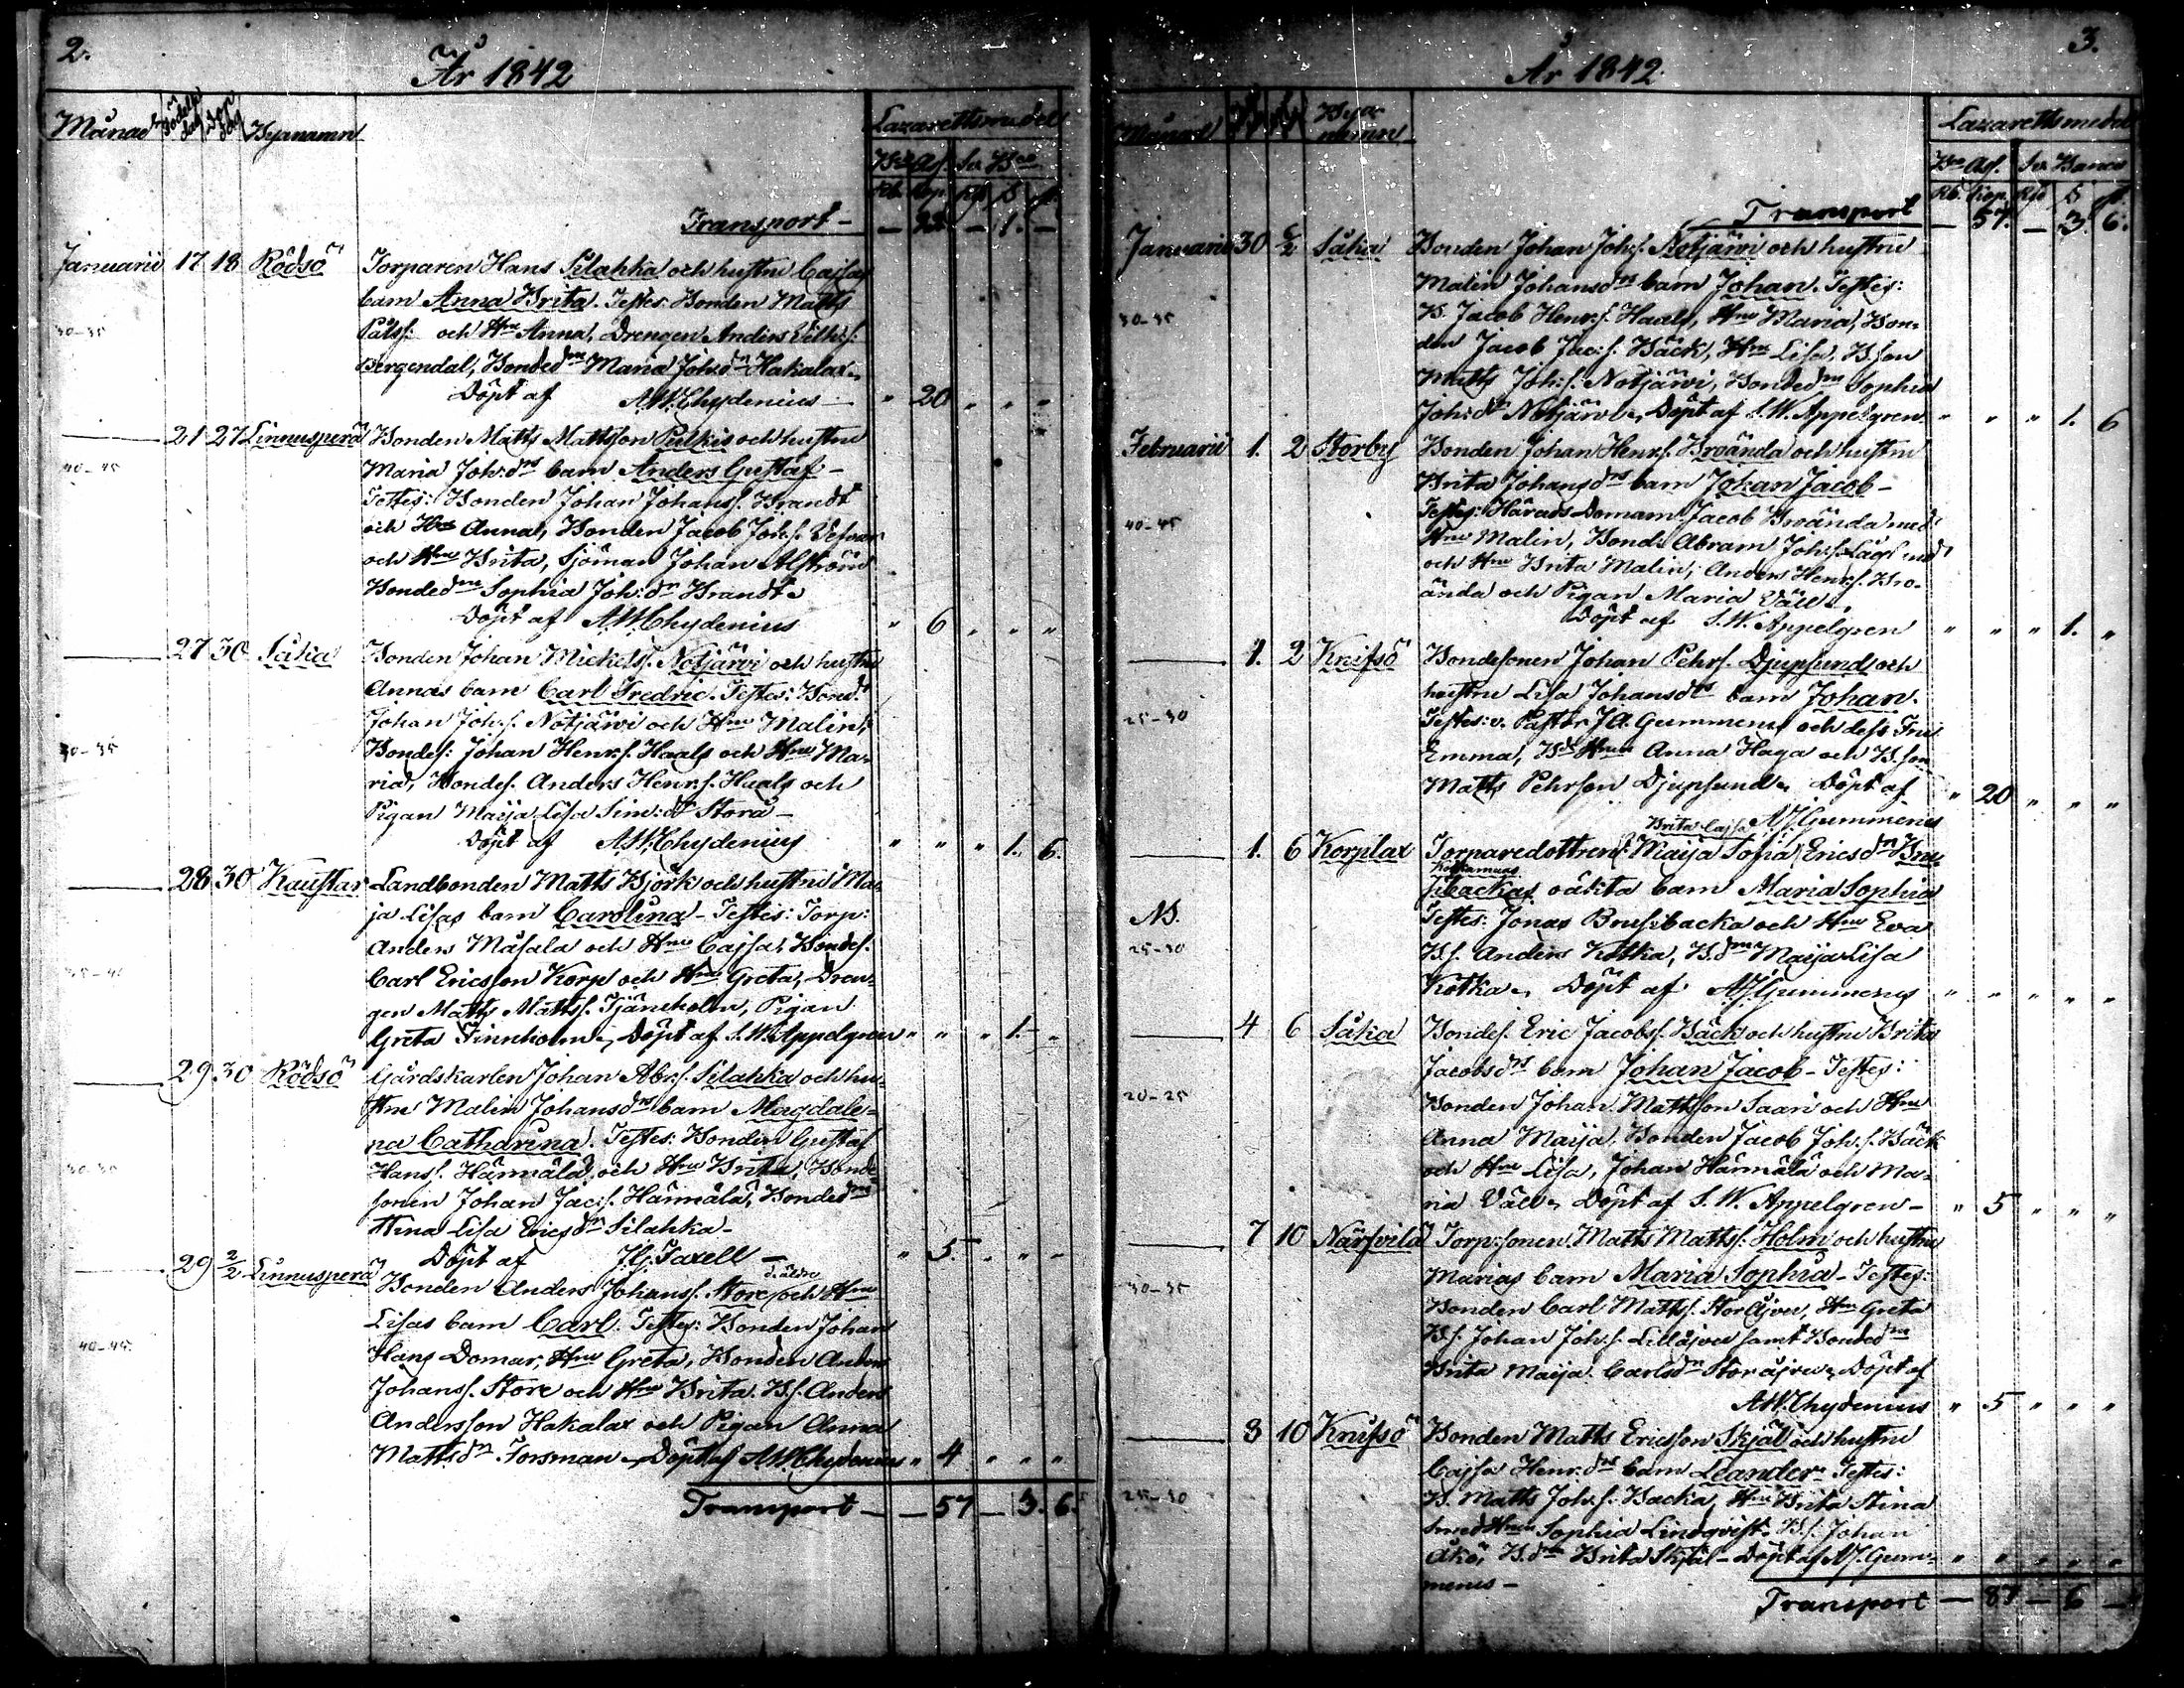 2.
År 1842
Månad Födelse dag Dop dag Byanamn Lazarettsmedel
Bco Ass. Sv. Bco
Rb. kop. Rd S r.
Transport - — 22 — 1. —
Januarii 17 18 Rödsö Torparen Hans Silahka och hustru Cajsas
barn Anna Brita. Testes: Bonden Matts
30-35 Pålss: och Hru Anna, Drengen Anders
Bergendal, Bondedn Maria Joh:dn Hakalax.
Döpt af A.W. Chydenius — " 20 " " "
21 27 Linnusperä Bonden Matts Mattsson Pulkis och hustru
40-45 Maria Joh:drs barn Anders Gustaf -
Testes: Bonden Johan Johanss. Brandt
och Hru Anna, Bonden Jacob Joh:s.
och Hru Brita, Sjöman Johan Ahlström
Bondedn Sophia Joh:dr Brandt.
Döpt af A.W. Chydenius " 6 " " "
27 30 Såka Bonden Johan Mickelss. Notjärvi och hustru
Annas barn Carl Fredric. Testes: Bond:
Johan Joh:s. Notjärvi och Hru Malin,
30-35 Bondes: Johan Henr:s. Haals och Hru Ma-
ria, Bondes. Anders Henr:s. Haals och
Pigan Maija Lisa Sim:dr Stora -
Döpt af A.W. Chydenius " " " 1. 6.
28 30 Kaustar Landbonden Matts Björk och hustru Ma-
ja Lisas barn Carolina - Testes: Torp:
Anders Måsala och Hru Cajsa, Bondes.
35-40 Carl Ericsson Korp och Hru Greta, Dren-
gen Matts Mattss. Tjäreholm, Pigan
Greta Finnholm. Döpt af S.W. Appelgren " " " 1. "
29 30 Rödsö Gårdskarlen Johan Abr:s. Silahka och hu-
stru Malin Johansdrs barn Magdale-
na Catharina. Testes: Bonden Gustaf
30-35 Hanss. Hännälä och Hru Brita, Bonde-
sonen Johan Jac:s. Hännälä, Bondedn
Stina Lisa Ericsdr Silahka -
Döpt af J.G. Taxell — " 5 " " "
29 2/2 Linnusperä Bonden Anders Johanss. Store d. äldre och Hru
Lisas barn Carl. Testes: Bonden Johan
40-45 Hans Domar, Hru Greta, Bonden Anders
Johanss. Store och Hru Brita. B.s. Anders
Andersson Hakalax och Pigan Anna
Mattsdr Forsman. Döpt af A.W. Chydenius " 4 " " "
Transport — — 57 — 3. 6.
3.
År 1842.
Månad Bya namn Lazarettsmedel
Bco Ass. Sv. Banco
Rb. kop. Rd S r.
Transport — 57. — 3. 6.
Januarii 30 2/2 Såka Bonden Johan Joh:s. Notjärvi och hustru
Malin Johansdrs barn Johan. Testes:
30-35 B. Jacob Henr:s. Haals, Hru Maria, Bon-
den Jacob Jac:s. Bäck, Hru Lisa, B.son
Matts Joh:s. Notjärvi, Bondedn Sophia
Joh:dr Notjärvi. Döpt af S.W. Appelgren " " " 1. 6
Februarii 1. 2 Storby Bonden Johan Henr:s. Broända och hustru
Brita Johansdrs barn Johan Jacob -
40-45 Testes: Härads Domaren Jacob Broända med
Hru Malin, Bond: Abram Joh:s.
och Hru Brita Malin, Anders Henr:s. Bro-
ända och Pigan Maria Väll.
Döpt af S.W. Appelgren " " " 1. "
1. 2 Knifsö Bondesonen Johan Pehrs. Djupsund och
hustru Lisa Johansdrs barn Johan.
25-30 Testes: v. Pastor J.A. Gummerus och dess Fru
Emma, Bde Hru Anna Haga och B.son
Matts Pehrson Djupsund. Döpt af
A.J. Gummerus " 20 " " "
Brita Cajsa
1. 6 Korplax Torparedottren Maija Sofia Ericsdr Bru
Kotkamaas
sibackas oäkta barn Maria Sophia
NB. Testes: Jonas Brusibacka och Hru Eva
25-30 B.s. Anders Kotka, B.dn Maija Lisa
Kotka. Döpt af A.J. Gummerus " " " " "
4 6 Såka Bondes. Eric Jacobss. Bäck och hustru Brita
Jacobsdrs barn Johan Jacob - Testes:
20-25 Bonden Johan Mattsson Saari och Hru
Anna Maija, Bonden Jacob Joh:s. Bäck
och Hru Lisa, Johan Hännälä och Ma-
ria Väll. Döpt af S.W. Appelgren - " 5 " " "
7 10 Närvilä Torp:sonen Matts Mattss. Holm och hustru
30-35 Marias barn Maria Sophia - Testes:
Bonden Carl Mattss. Storåjven, Hru Greta
B.s. Johan Joh:s. Lillåjven samt Bondedn
Brita Maija Carlsdr Storåjven. Döpt af
A.W. Chydenius " 5 " " "
8 10 Knifsö Bonden Matts Ericsson Skjäl och hustru
Cajsa Henr:drs barn Leander. Testes:
25-30 B. Matts Joh:s. Backa, Hru Brita Stina
Smed Hru Sophia Lindqvist. B.s. Johan
Åkö, B.dn Brita Skjäl - Döpt af A.J. Gum- " " " " "
merus -
Transport — 87 — 6 —